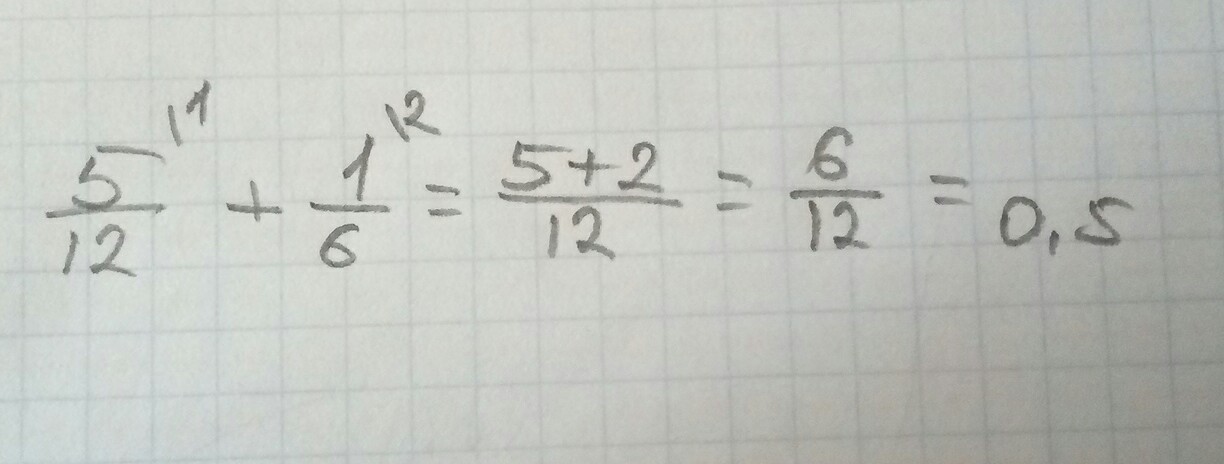 5/12 \1 + 1/6 \2 = 5+2/12 = 6/12 = 0,5